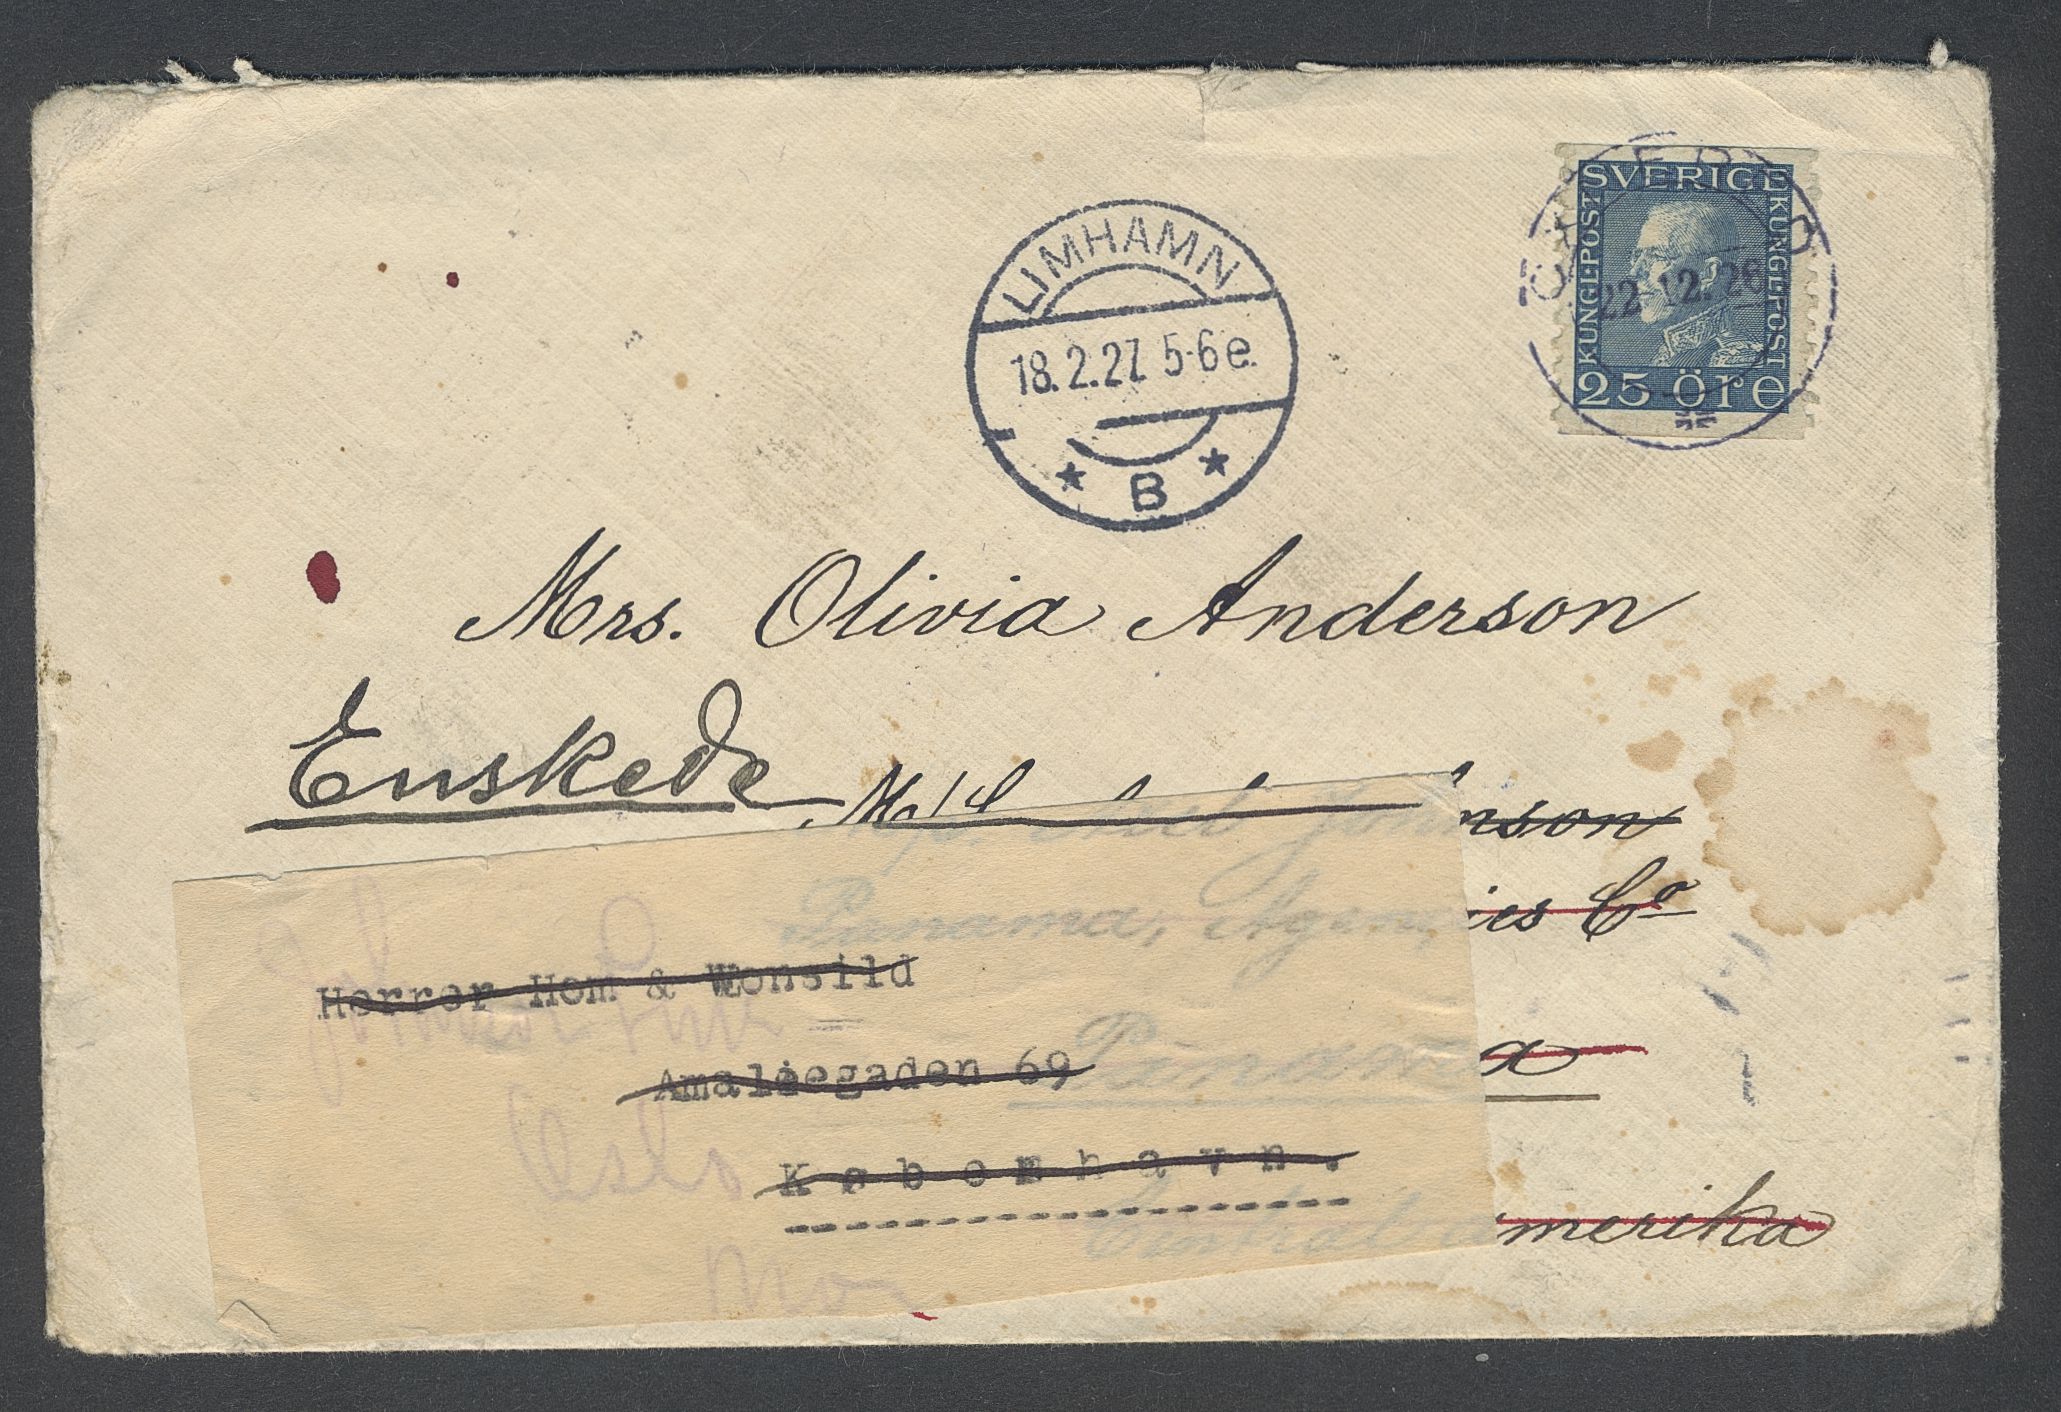 SVERIGE
KUNGL.POST
KUNGL.POST
25 ÖRE
22.12.26
LIMHAMN
18.2.27. 5-6 e.
* B *
Mrs. Olivia Anderson
Enskede
Panama, Agencies Co
Herrer Hom & Wonsild
Panama
Amaliegaden 69
Oslo
København.
Centralamerika